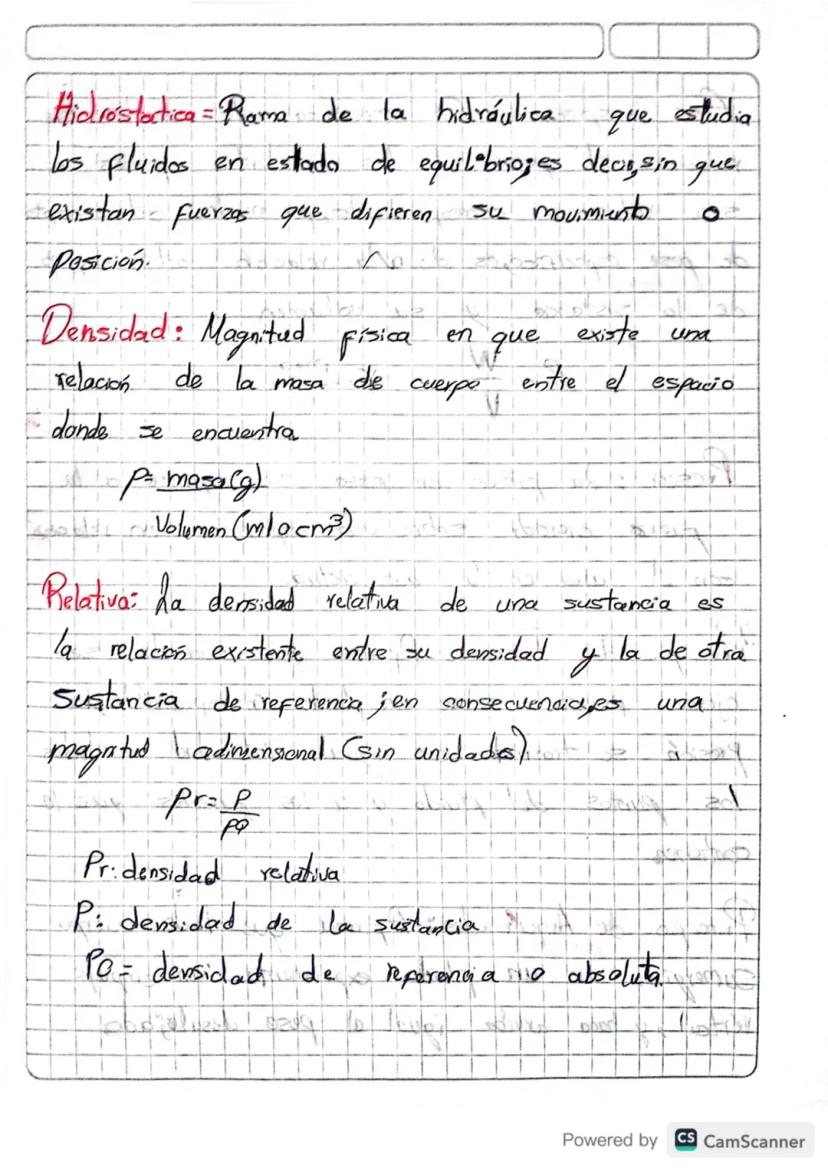 Hidróstactica = Rama de la hidráulica que estudia
los fluidos en estado de equilibrio; es decir, sin que
existan fuerzas que difieren su movimiento o
posición.
Densidad: Magnitud física en que existe una
relación de la masa de cuerpo entre el espacio
donde se encuentra
P= masa(g)
Volumen (ml o cm³)
Relativa: La densidad relativa de una sustancia es
la relación existente entre su densidad y la de otra
sustancia de referencia ; en consecuencia, es una
magnitud adimensional (sin unidades)
Pr= P
PO
Pr: densidad relativa
P: densidad de la sustancia
PO = densidad de referencia o absoluta.
Powered by CS CamScanner